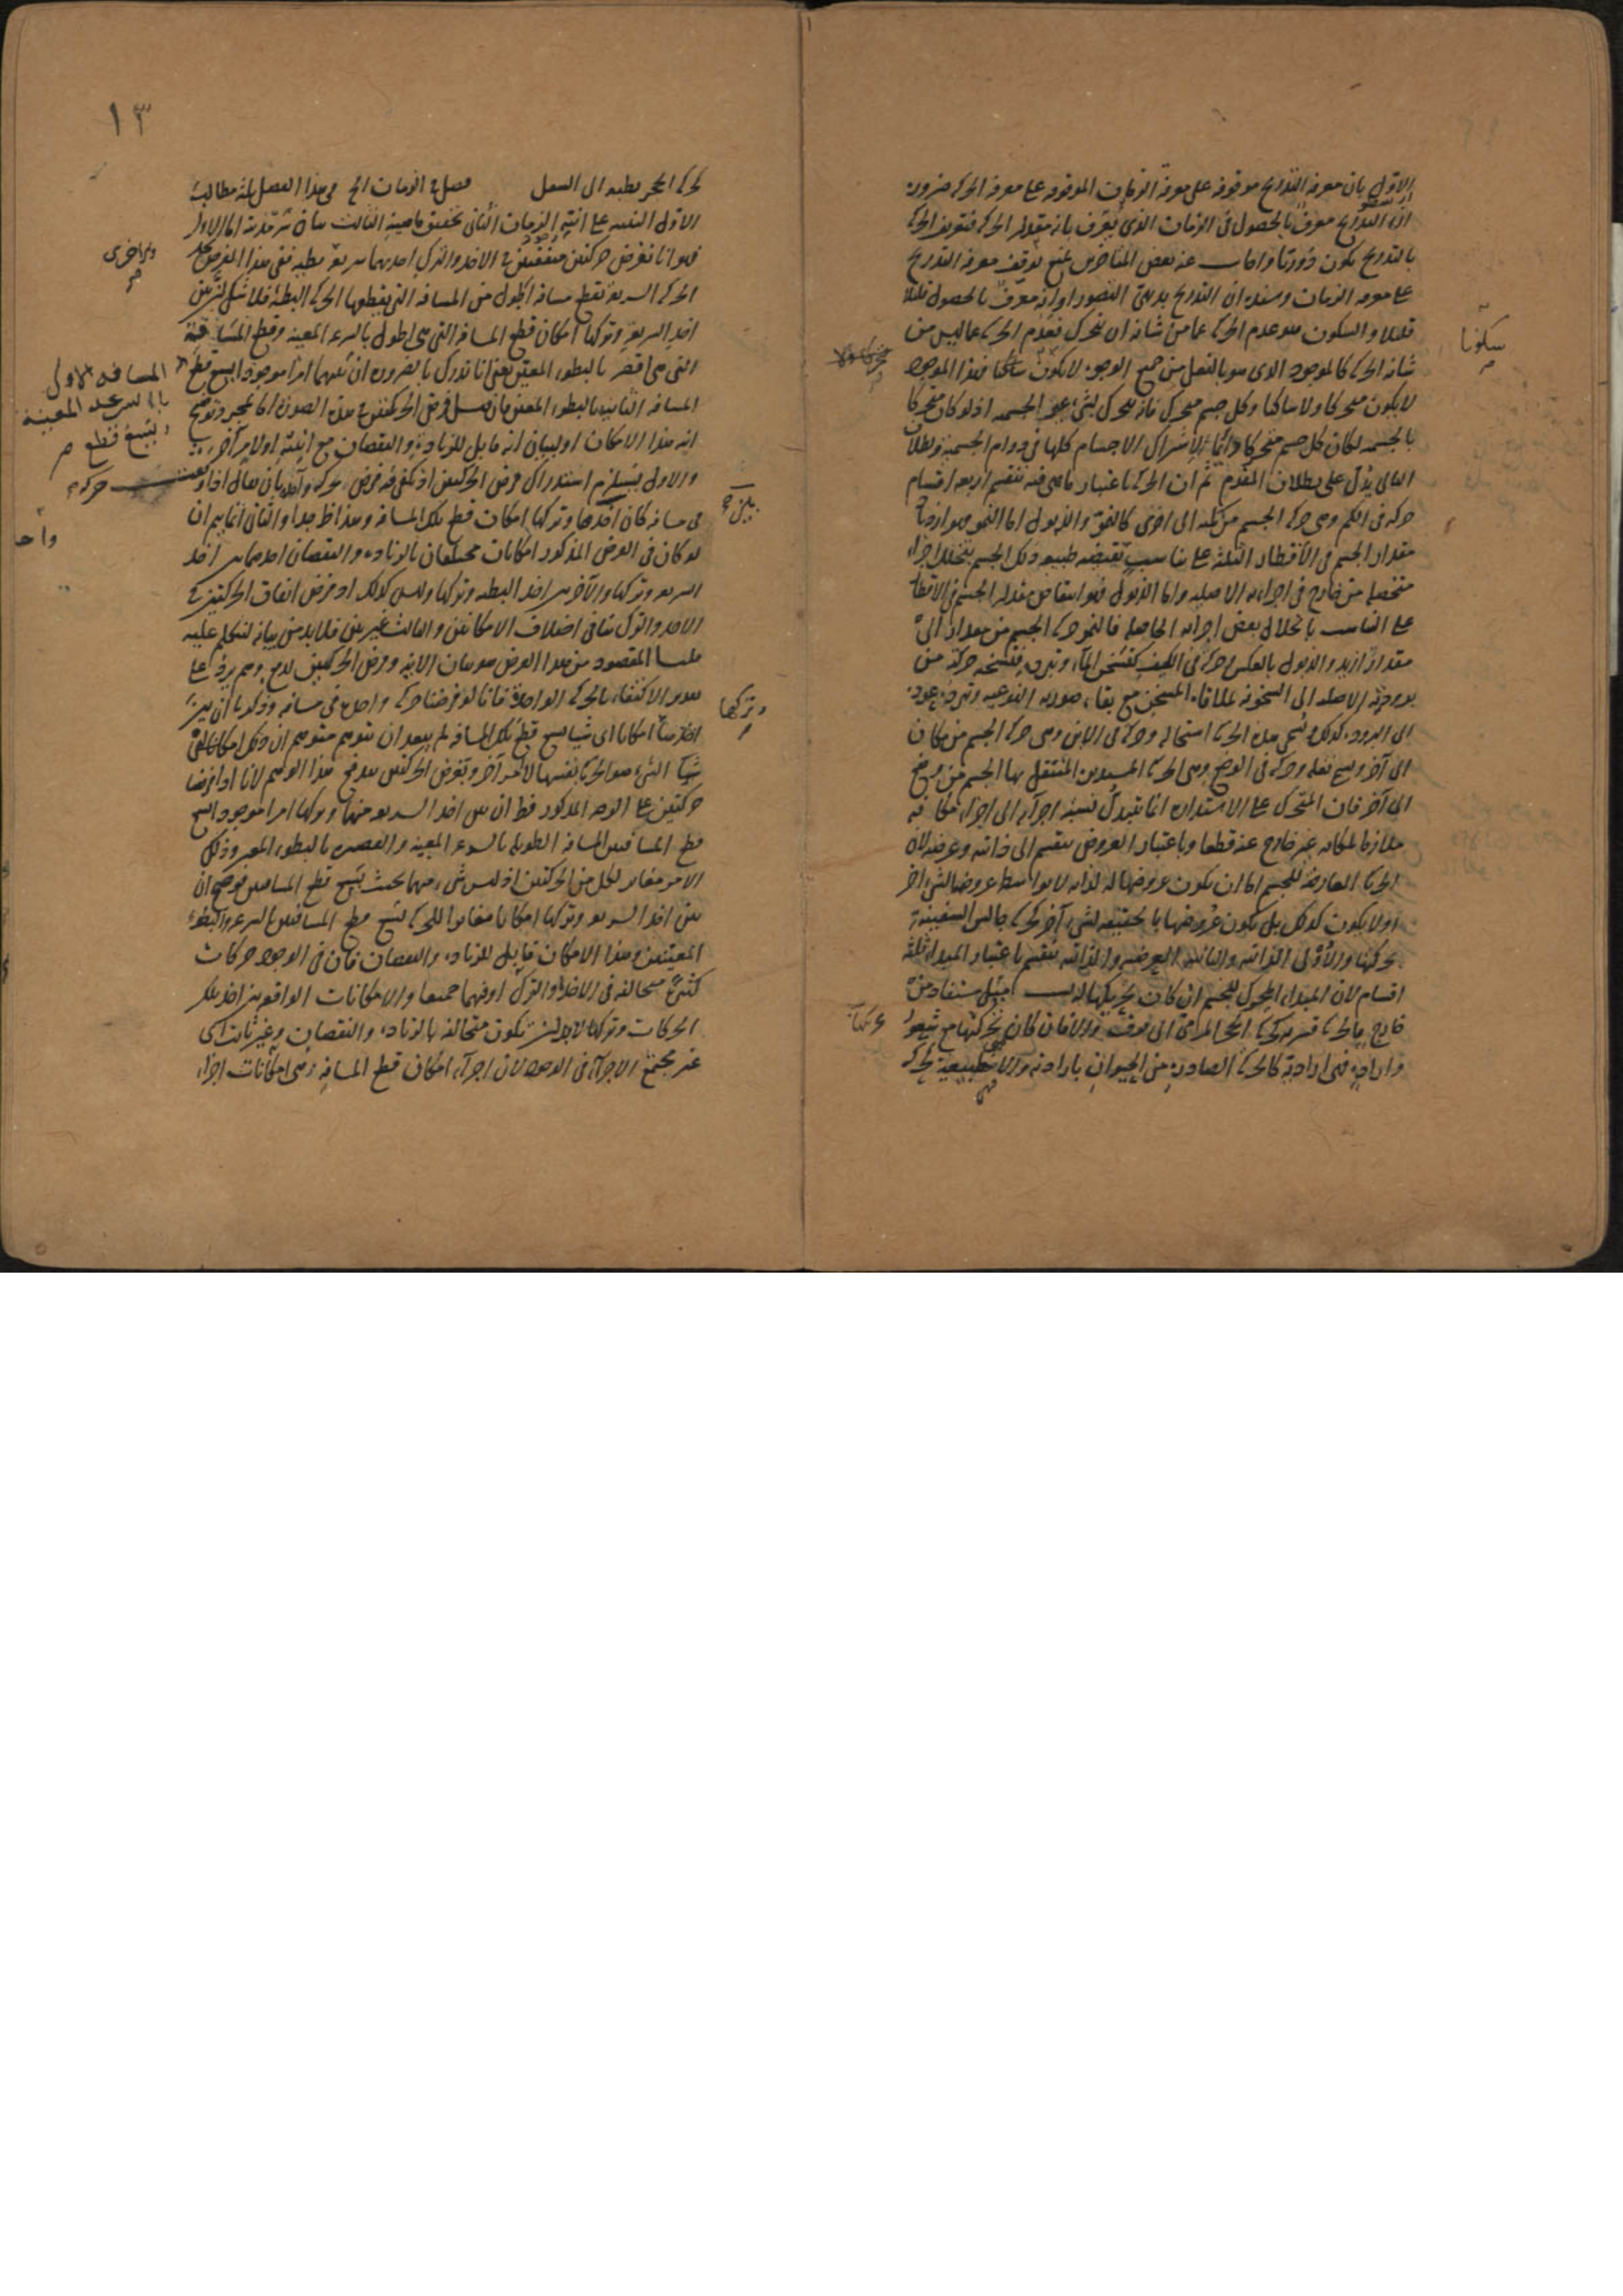 الاول بان معرفة التدريج موقوفة على معرفة الزمان الموقوفة على معرفة الحركة ضرورة
ان التدريج معرف بالحصول في الزمان الذي يعرف بانه مقدار الحركة فتعريف الحركة
بالتدريج يكون دوريا واجاب عنه بعض المتاخرين بمنع توقف معرفة التدريج
على معرفة الزمان وسنده ان التدريج بديهي التصور او انه معرف بالحصول قليلا
قليلا والسكون هو عدم الحركة عما من شانه ان يتحرك فعدم الحركة عما ليس من
شانه الحركة كالموجود الذي هو بالفعل من جميع الوجوه لا يكون فهذا الموجود
لا يكون متحركا ولا ساكنا وكل جسم متحرك فانه يتحرك لشيء غير الجسمية اذ لو كان متحركا
بالجسمية لكان كل جسم متحركا دائما لاشتراك الاجسام كلها في دوام الجسمية وبطلان
التالي يدل على بطلان المقدم ثم ان الحركة باعتبار ما هي فيه تنقسم اربعة اقسام
حركة في الكم وهي حركة الجسم من كمية الى اخرى كالنمو والذبول اما النمو فهو ازدياد
مقدار الجسم في الاقطار الثلثة على تناسب تقتضيه طبيعة ذلك الجسم بتخلل اجزاء
منفصلة من خارج في اجزائه الاصلية واما الذبول فهو انتقاص مقدار الجسم في الاقطار
على التناسب بانحلال بعض اجزائه الحاصلة فالنمو حركة الجسم من مقدار الى
مقدار ازيد والذبول بالعكس وحركة في الكيف كتسخن الماء وتبرده فتسخنه حركة من
برودته الاصلية الى السخونة لملاقاة المسخن مع بقاء صورته النوعية وتبرده عوده
الى البرودة كذلك وتسمى هذه الحركة استحالة وحركة في الاين وهي حركة الجسم من مكان
الى آخر وتسمى نقلة وحركة في الوضع وهي الحركة المستديرة المنتقل بها الجسم من وضع
الى آخر فان المتحرك على الاستدارة انما تتبدل نسبة اجزائه الى اجزاء مكانه
ملازما لمكانه غير خارج عنه قطعا وباعتبار العروض تنقسم الى ذاتية وعرضية لان
الحركة العارضة للجسم اما ان يكون عروضها له لذاته لا بواسطة عروضها لشيء آخر
او لا يكون كذلك بل يكون عروضها بالحقيقة لشيء آخر كحركة جالس السفينة
بحركتها والاولى الذاتية والثانية العرضية والذاتية تنقسم باعتبار المبداء ثلثة
اقسام لان المبداء المحرك للجسم ان كان تحريكها له بسبب ميل مستفاد من
خارج فالحركة قسرية كحركة الحجر المرمي الى فوق والا فان كان تحركها مع شعور
وارادة فهي ارادية كالحركة الصادرة من الحيوان بارادته والا فهي طبيعية كحركة
سكونا
متحركا ولا
١٣
كحركة الحجر بطبعه الى السفل فصل في الزمان الخ في هذا الفصل ثلثة مطالب
الاول التنبيه على انية الزمان الثاني تحقيق ماهيته الثالث بيان سرمديته اما الاول
فهو انا نفرض حركتين متفقتين في الاخذ والترك احديهما سريعة بطيئة ففي هذا الفرض تجد
الحركة السريعة تقطع مسافة اطول من المسافة التي يقطعها الحركة البطيئة فلا شك ان بين
اخذ السريعة وتركها امكان قطع المسافة التي هي اطول بالسرعة المعينة وقطع المسافة
التي هي اقصر بالبطوء المعين يعني انا ندرك بالضرورة ان بينهما امرا موجودا يسع قطع
المسافة الثانية بالبطوء المعين فان قيل فرض الحركتين في هذه الصورة اما لمجرد توضيح
ان هذا الامكان او لبيان انه قابل للزيادة والنقصان مع انيته او لامر آخر
والاول يستلزم استدراك فرض الحركتين اذ يكفي فيه فرض حركة واحدة بان يقال اذا وقعت
في مسافة كان اخذها وتركها امكان قطع تلك المسافة وهذا ظ جدا والثاني انما يتم ان
لو كان في الفرض المذكور امكانات مختلفان بالزيادة والنقصان احدهما بين اخذ
السريعة وتركها والآخر بين اخذ البطيئة وتركها وليس كذلك اذ فرض اتفاق الحركتين في
الاخذ والترك ينافي اختلاف الامكانين والثالث غير بين فلا بد من بيانه لنتكلم عليه
قلنا المقصود من هذا الفرض هو بيان الانية وفرض الحركتين لدفع وهم يرد على
تقدير الاكتفاء بالحركة الواحدة فانا لو فرضنا حركة واحدة في مسافة وذكرنا ان بين
اخذها امكانا اي شيا يسع قطع تلك المسافة لم يبعد ان يتوهم متوهم ان ذلك الامكان اي
شيا الشيء هو الحركة نفسها لا امر آخر وبفرض الحركتين يندفع هذا الوهم لانا اذا فرضنا
حركتين على الوجه المذكور قط ان بين اخذ السريعة منهما وتركها امرا موجودا يسع
قطع المسافتين المسافة الطويلة بالسرعة المعينة والقصيرة بالبطوء المعين وذلك
الامر مغاير لكل من الحركتين اذ ليس شيء منهما بحيث يسع قطع المسافتين فوضح ان
بين اخذ السريعة وتركها امكانا مغايرا للحركة يسع قطع المسافتين بالسرعة والبطوء
المعينين وهذا الامكان قابل للزيادة والنقصان فان في الوجود حركات
كثيرة متخالفة في الاخذ او الترك او فيهما جميعا والامكانات الواقعة بين اخذ تلك
الحركات وتركها لابد ان يكون متخالفة بالزيادة والنقصان وغير ثابت اي
غير مجتمع الاجزاء في الوجود لان اجزاء امكان قطع المسافة هي امكانات اجزاء
والاخرى
المسافة الاولى
بالسرعة المعينة
ويسع قطع
حركة
واحد
يلزم
وتركها